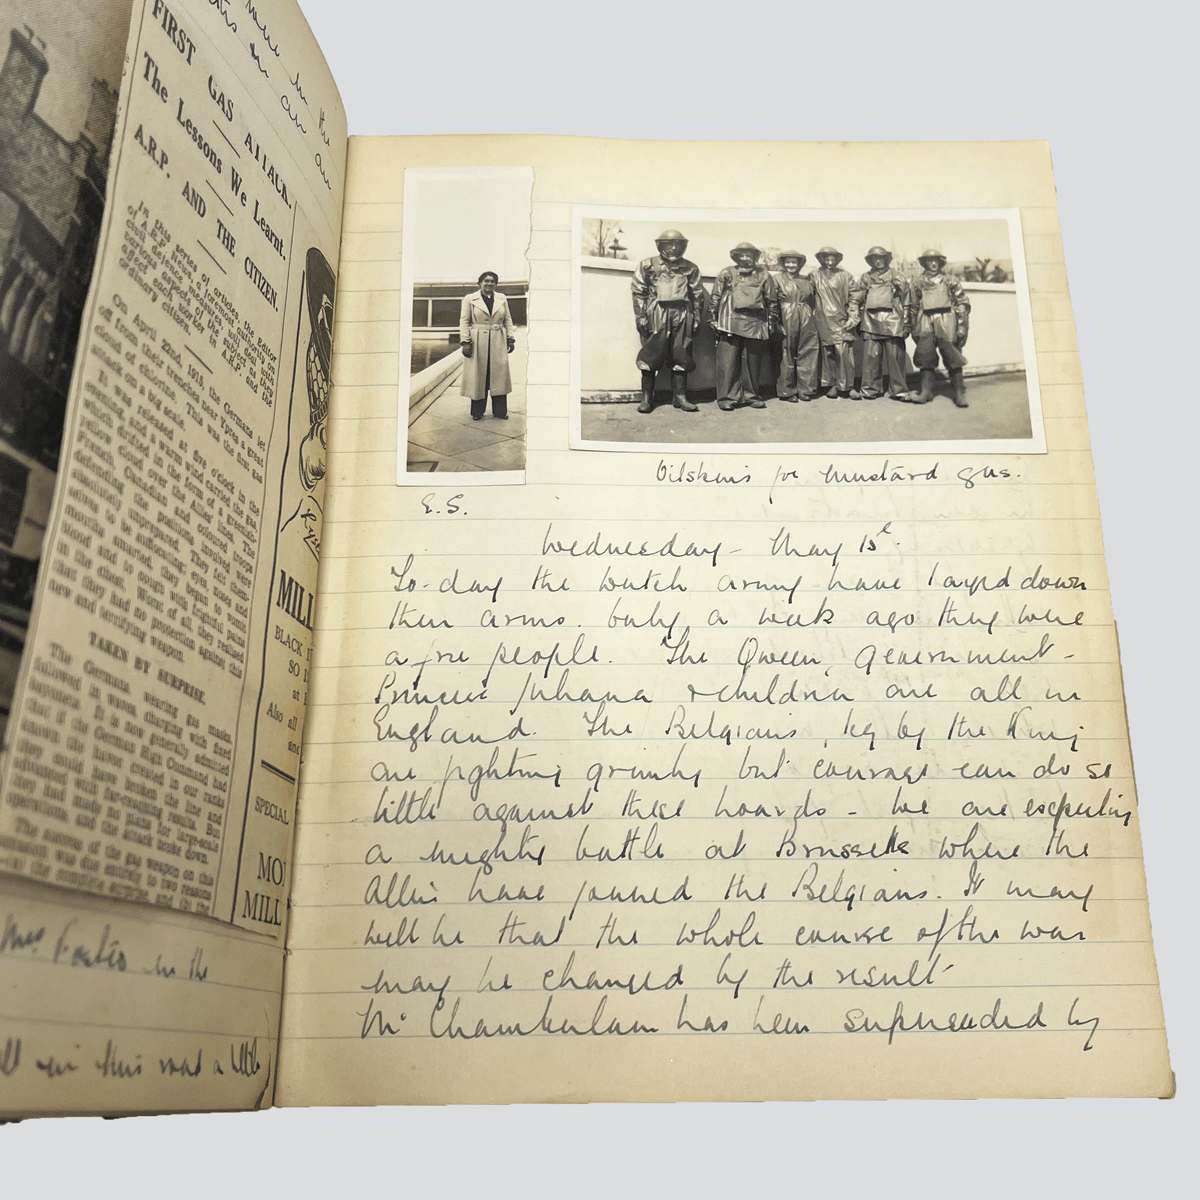 FIRST GAS ATTACK.
The Lessons We Learnt.
A.R.P. AND THE CITIZEN.
In this series of articles, the Editor
of A.R.P. News, a foremost authority on
civil defence measures, will deal with
various aspects of the subject as they
affect each worker in A.R.P. and the
ordinary citizen.
On April 22nd, 1915, the Germans let
off from their trenches near Ypres a great
cloud of chlorine. This was the first gas
attack on a big scale.
It was released at five o'clock in the
evening, and a warm wind carried the gas,
which drifted in the form of a greenish-
yellow cloud over the Allied lines. The
French, Canadian and coloured troops
defending the positions involved were
absolutely unprepared. They felt them-
selves to be suffocating; eyes, nose and
mouths smarted, they began to vomit
blood and to cough with frightful pains
in the chest. Worst of all, they realised
that they had no protection against this
new and terrifying weapon.
TAKEN BY SURPRISE.
The Germans, wearing gas masks,
followed in waves, charging with fixed
bayonets. It is now generally admitted
that if the German High Command had
known the havoc created in our ranks
they could have broken the line and
advanced with far-reaching results. But
they had made no plans for large-scale
operations, and the attack broke down.
The success of the gas weapon on this
occasion was due entirely to two reasons
MILL
BLACK
SO
at
Also all
SPECIAL
MO
MILL
Mrs Foster in the
in this was a little
Oilskins for mustard gas.
E.S.
Wednesday - May 15
To-day the Dutch army have layed down
their arms. Only a week ago they were
a free people. The Queen, government -
Princess Juliana & children are all in
England. The Belgians, leg by the King
are fighting grimly but courage can do so
little against these hoards - We are expecting
a mighty battle at Brussells where the
Allies have joined the Belgians. It may
well be that the whole course of the war
may be changed by the result
Mr Chamberlain has been superseded by